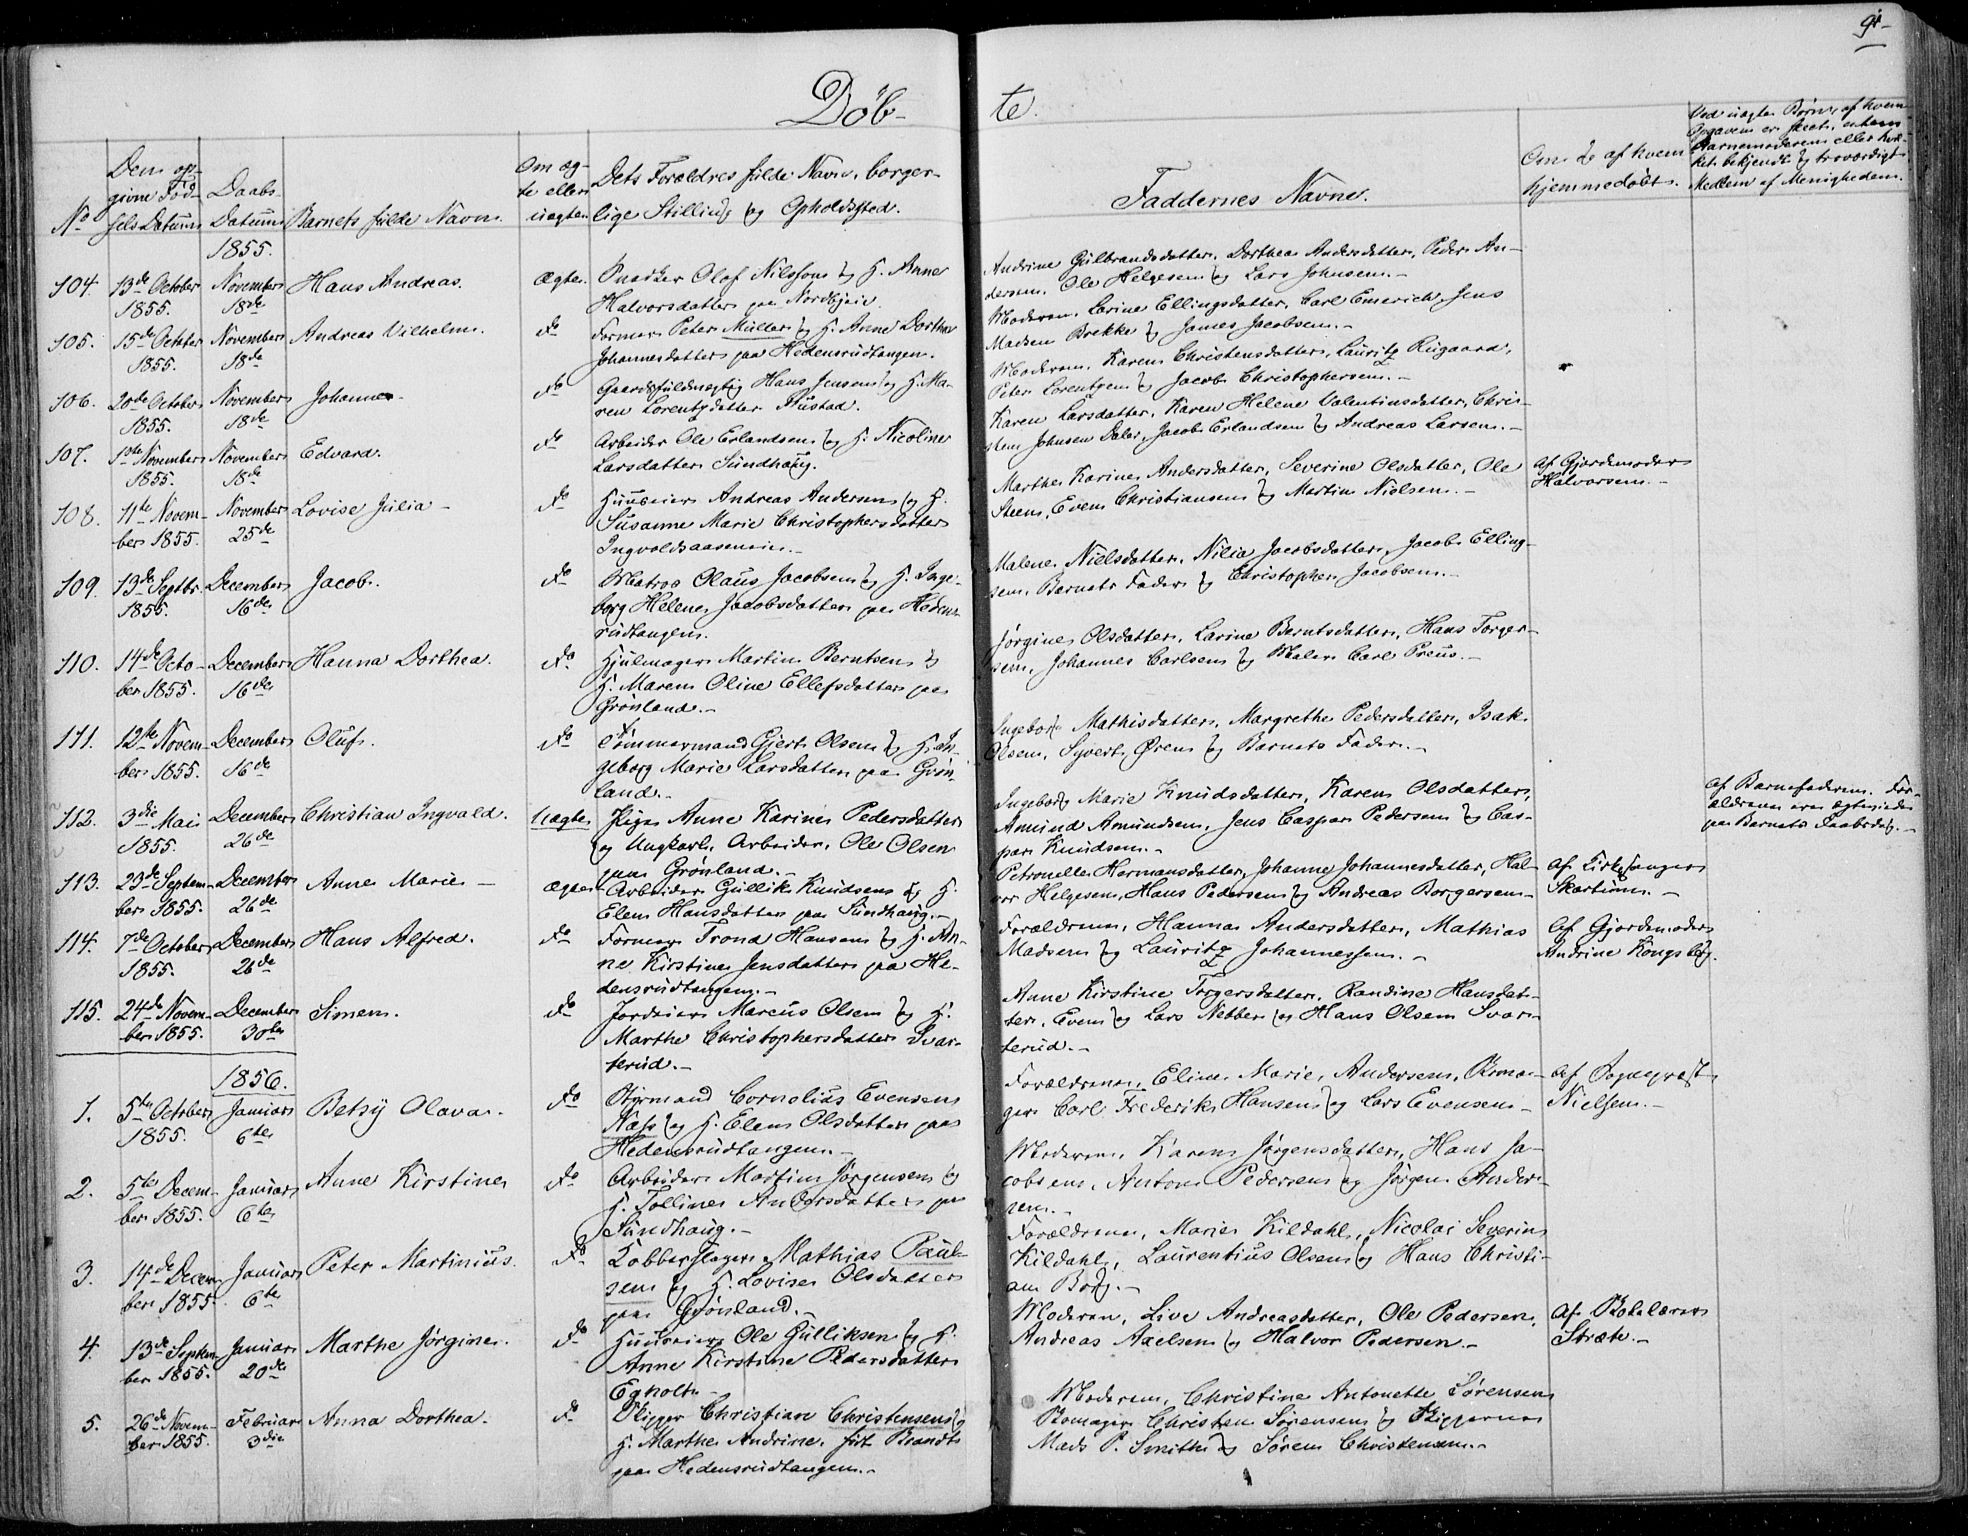 91
Döb- te.
No
Den op-
givne Föd-
sels Datum
Daabs
Datum
Barnets fulde Navn.
Om æg-
te eller
uægte.
Dets Forældres fulde Navn, borger-
lige Stilling og Opholdssted.
Faddernes Navne.
Om & af hvem
hjemmedöbt.
Ved uægte Börn, af hvem
Opgaven er skeet, enten
Barnemoderen eller hvil-
ket bekjendt og troværdigt
Medlem af Menigheden.
1855.
104. 13de October November Hans Andreas. Ægte. Snedker Olof Nilsson og H. Anne
1855. 18de Halvorsdatter paa Nordbyeie.
Andrine Gulbrandsdatter, Dorthea Andersdatter, Peder An-
dersen, Ole Helgesen og Lars Johnsen.-
105. 15de October November Andreas Vilhelm. do Former Peter Müller og H. Anne Dorthea
1855. 18de Johannesdatter paa Hedensrudtangen.
Moderen, Larine Ellingsdatter, Carl Emerich, Jens
Madsen Brekke og James Jacobsen.-
106. 20de October November Johannes do Gaardsfuldmægtig Hans Jensen og H. Ma-
1855. 18de ren Lorentzdatter Stustad.
Moderen, Karen Christensdatter, Lauritz Rügaard,
Peter Lorentzen og Jacob Christophersen.-
107. 1ste November November Edvard. do Arbeider Ole Erlandsen og H. Nicoline
1855. 18de Larsdatter Sundhaug.
Karen Larsdatter, Karen Helene Valentinsdatter, Chris-
ten Johnsen Daler, Jacob Erlandsen og Andreas Larsen.-
108. 11te Novem- November Lovise Julia - do Huuseier Andreas Andersen og H.
ber 1855. 25de Susanne Marie Christophersdatter
Ingvoldsaaseneie.-
Marthe Karine Andersdatter, Severine Olsdatter, Ole
Steen, Even Christiansen og Martin Nielsen.-
af Gjordemoder
Halvorsen.-
109. 19de Septbr. December Jacob. do Matros Olaus Jacobsen og H. Inge-
1855. 16de borg Helene Jacobsdatter paa Hedens-
rudtangen.
Malene Nielsdatter, Nilia Jacobsdatter, Jacob Elling-
sen, Barnets Fader og Christopher Jacobsen.-
110. 14de Octo- December Hanna Dorthea. do Hjulmager Martin Berntsen og
ber 1855. 16de H. Maren Oline Ellefsdatter paa
Grönland.-
Jörgine Olsdatter, Larine Berntsdatter, Hans Torger-
sen, Johannes Carlsen og Maler Carl Preus.-
111. 12te Novem- December Oluf. do Tömmermand Gjert Olsen og H. In-
ber 1855. 16de geborg Marie Larsdatter paa Grön-
land.-
Ingeborg Mathisdatter, Margrethe Pedersdatter, Isak
Olsen, Syvert Ören og Barnets Fader.-
112. 3die Mai December Christian Ingvald. Uægte Pige Anne Karine Pedersdatter
1855. 26de og Ungkarl, Arbeider, Ole Olsen
paa Grönland.-
Ingeborg Marie Knudsdatter, Karen Olsdatter,
Amund Amundsen, Jens Casper Pedersen og Cas-
per Knudsen.-
af Barnefaderen. For-
ældrene ere ægteviede
paa Barnets Daabsdag.-
113. 23de Septem- December Anne Marie - Ægte Arbeider Gullik Knudsen og H.
ber 1855. 26de Elen Hansdatter paa Sundhaug.-
Petronelle Hermansdatter, Johanne Johannesdatter, Hal-
vor Helgesen, Hans Pedersen og Andreas Borgersen-
af Kirkesanger
Skartum.-
114. 7de October December Hans Alfred. do Former Trond Hansen og H. An-
1855. 26de ne Kirstine Jensdatter paa He-
densrudtangen.-
Forældrene, Hanna Andersdatter, Mathias
Madsen og Lauritz Johannessen.-
af Gjordemoder
Andrine Kongsberg.
115. 24de Novem- December Simen. do Jordeier Marcus Olsen og H.
ber 1855. 30te Marthe Christophersdatter Svar-
terud.-
Anne Kirstine Torgersdatter, Randine Hansdat-
ter, Even og Lars Nebben og Hans Olsen Svar-
terud.-
1856.
1. 5te October Januar Betsy Olava. do Styrmand Cornelius Evensen
1855. 6te Næss og H. Elen Olsdatter paa
Hedensrudtangen.-
Forældrene, Eline Marie Andersen, Skoma-
ger Carl Frederik Hansen og Lars Evensen-
af Sognepræst
Nielsen.-
2. 5te Decem- Januar Anne Kirstine do Arbeider Martin Jörgensen og
ber 1855. 6te H. Tolline Andersdatter paa
Sundhaug.-
Moderen, Karen Jörgensdatter, Hans Ja-
cobsen, Anton Pedersen og Jörgen Ander-
sen.-
3. 14de Decem- Januar Peter Martinius. do Kobberslager Mathias Paul-
ber 1855. 6te sen og H. Lovise Olsdatter
paa Grönland.-
Forældrene, Marie Kildahl, Nicolai Severin
Kildahl, Laurentius Olsen og Hans Christi-
an Borg.-
4. 13de Septem- Januar Marthe Jörgine. do Huuseier Ole Gulliksen og H.
ber 1855. 20de Anne Kirstine Pedersdatter
Egholt-
Moderen, Live Andreasdatter, Ole Pedersen,
Andreas Axelsen og Halvor Pedersen.-
af Skolelærer
Stræte.-
5. 26de Novem- Februar Anna Dorthea. do Skipper Christian Christensen og
ber 1855. 3die H. Marthe Andrine, föt Brandt
paa Hedensrudtangen.-
Moderen, Christine Antonette Sörensen
Skomager Christen Sörensen og Skipperne
Mads P. Smith og Sören Christensen.-